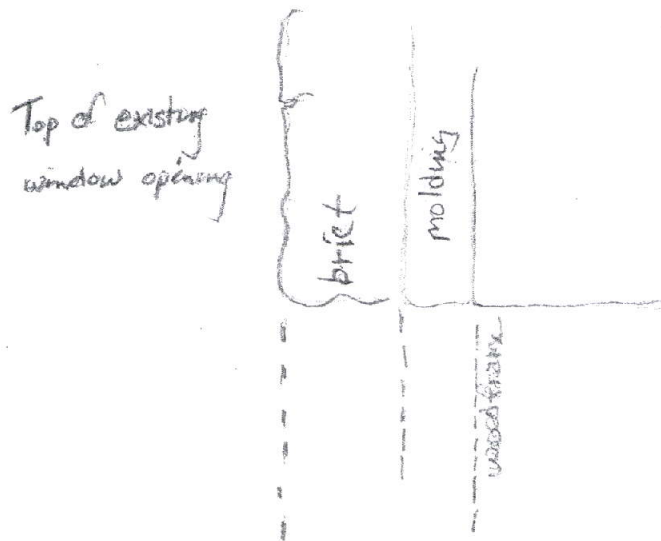 Top of existing
window opening
brick
molding
wood frame